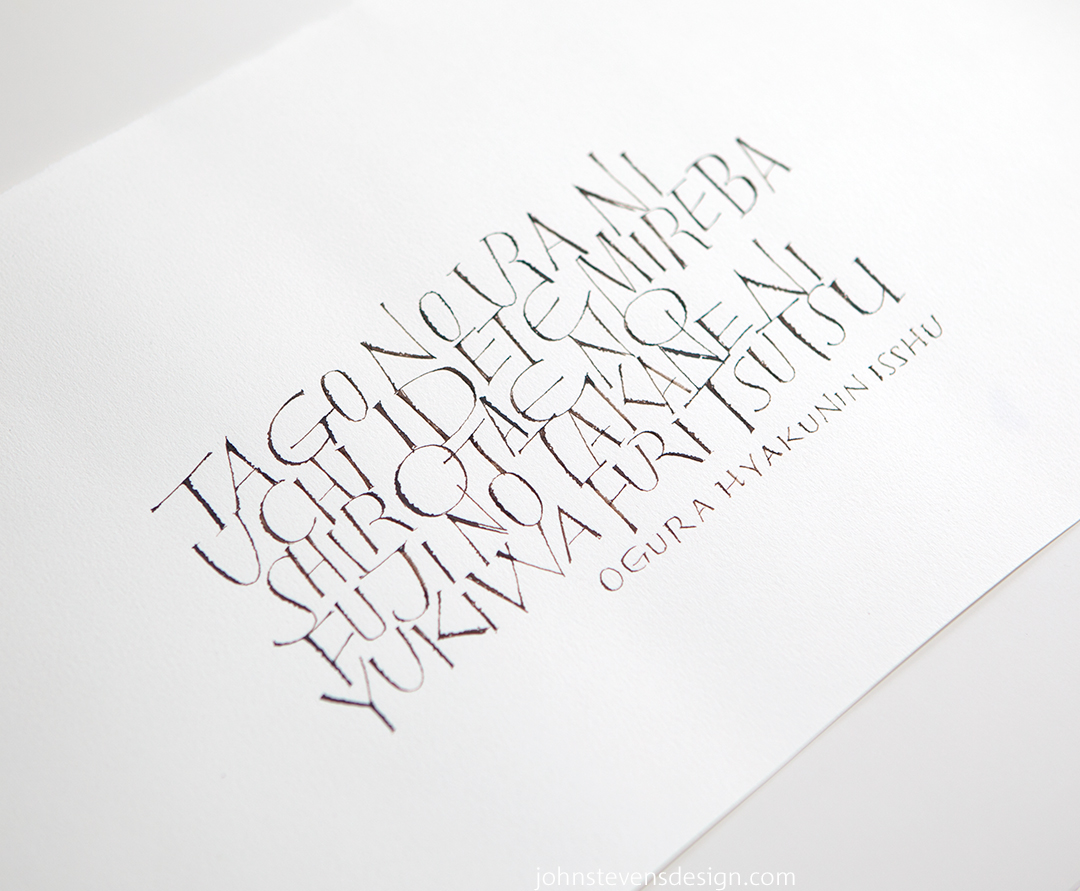 TAGO NO URA NI
UCHI IDETE MIREBA
SHIROTAE NO
FUJI NO TAKANE NI
YUKI WA FURI TSUTSU
OGURA HYAKUNIN ISSHU
johnstevensdesign.com